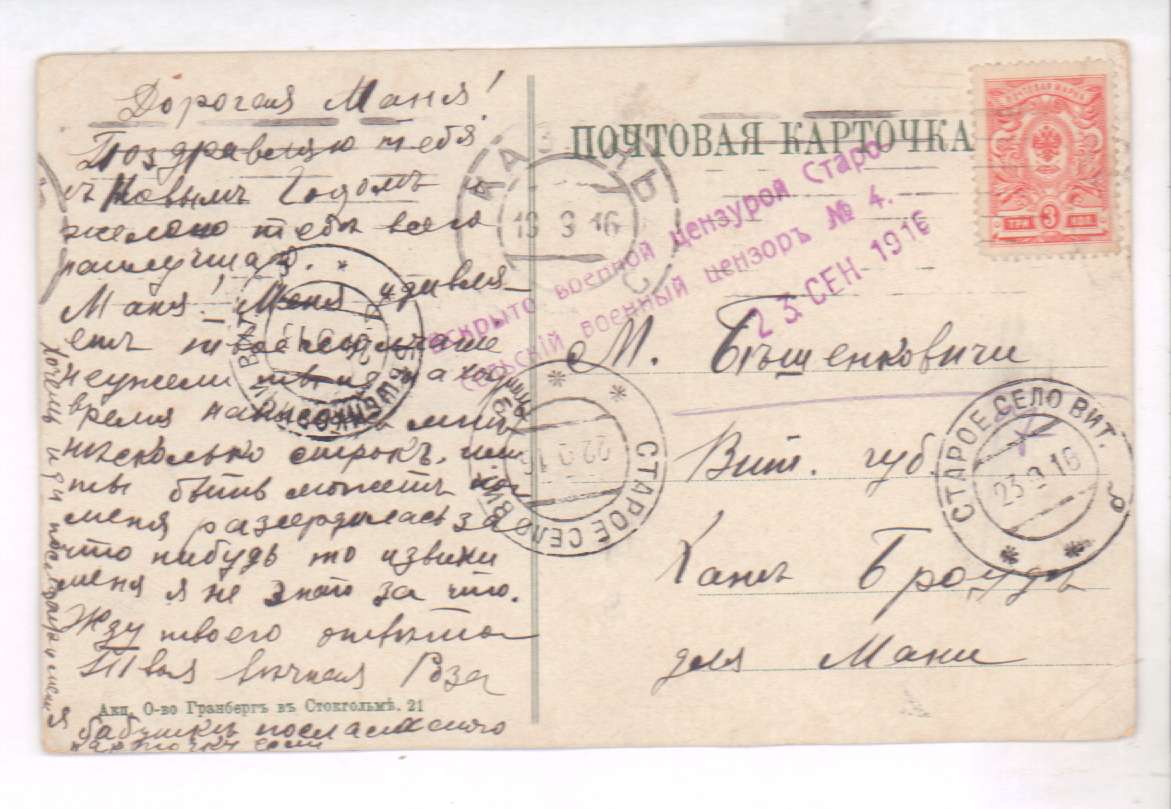 Дорогая Маня!
Поздравляю тебя
съ Новымъ Годомъ
желаю тебѣ всего
наилучшаго.
Маня! Меня удивля-
етъ твое молчание
неужели ты не нахо
время написать мнѣ
нѣсколько строкъ. или
ты быть можетъ на
меня разсердилась за
что нибудь то извини
меня я не знаю за что.
Жду твоего отвѣта
Твоя вѣчная Роза
Акц. О-во Гранбергъ въ Стокгольмѣ. 21
бабушкѣ послала
карточку если
хочешь иди
ПОЧТОВАЯ КАРТОЧКА
ПОЧТОВАЯ МАРКА
ТРИ 3 КОП
КАЗАНЬ
18 9 16
Вскрыто военной цензурой Старо-
сельскій военный цензоръ № 4.
23 СЕН. 1916
М. Бѣшенковичи
Вит. губ
Ханѣ Броудѣ
для Мани
СТАРОЕ СЕЛО ВИТ.
22 9 16
СТАРОЕ СЕЛО ВИТ. б
23 9 16